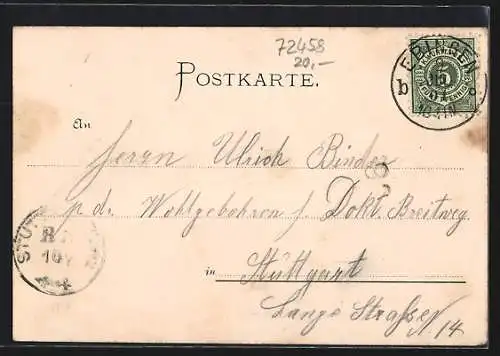 72458
20,-
POSTKARTE.
EBINGEN
b
5
An
Herrn Ulrich Binder
8
p. d. Wohlgebohren f. Dokt. Breitweg.
STUT
10
in Stuttgart
Lange Strasse N 14